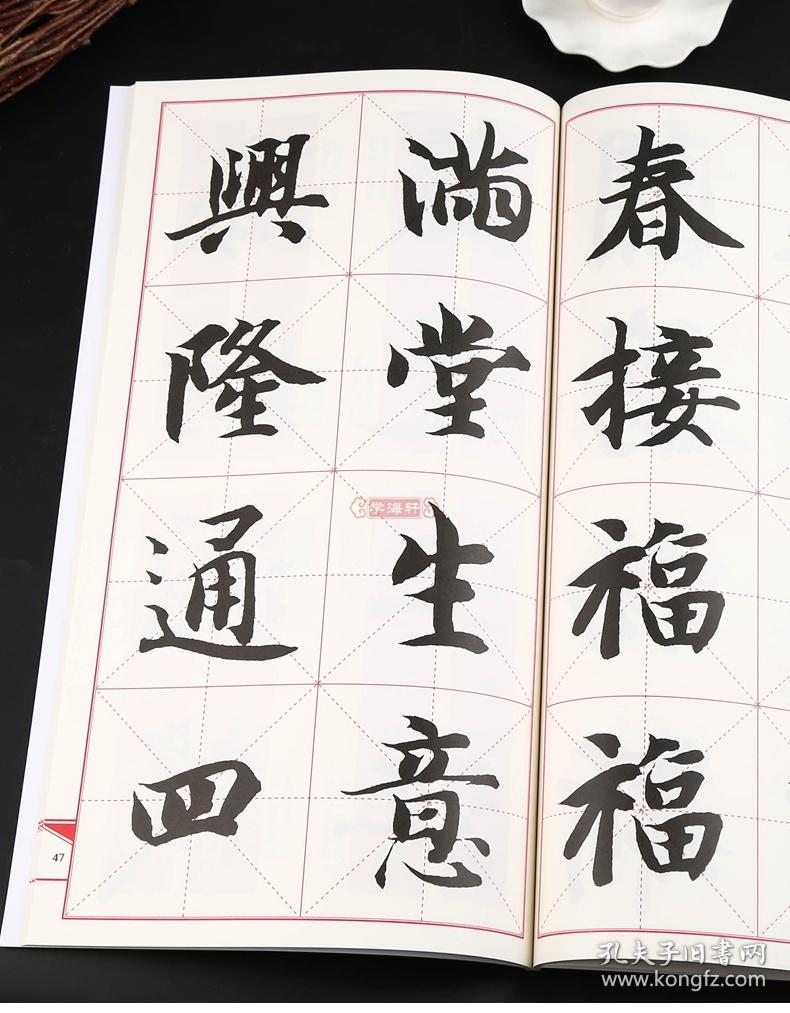 春接福福
满堂生意
興隆通四
学海轩
47
孔夫子旧书网
www.kongfz.com